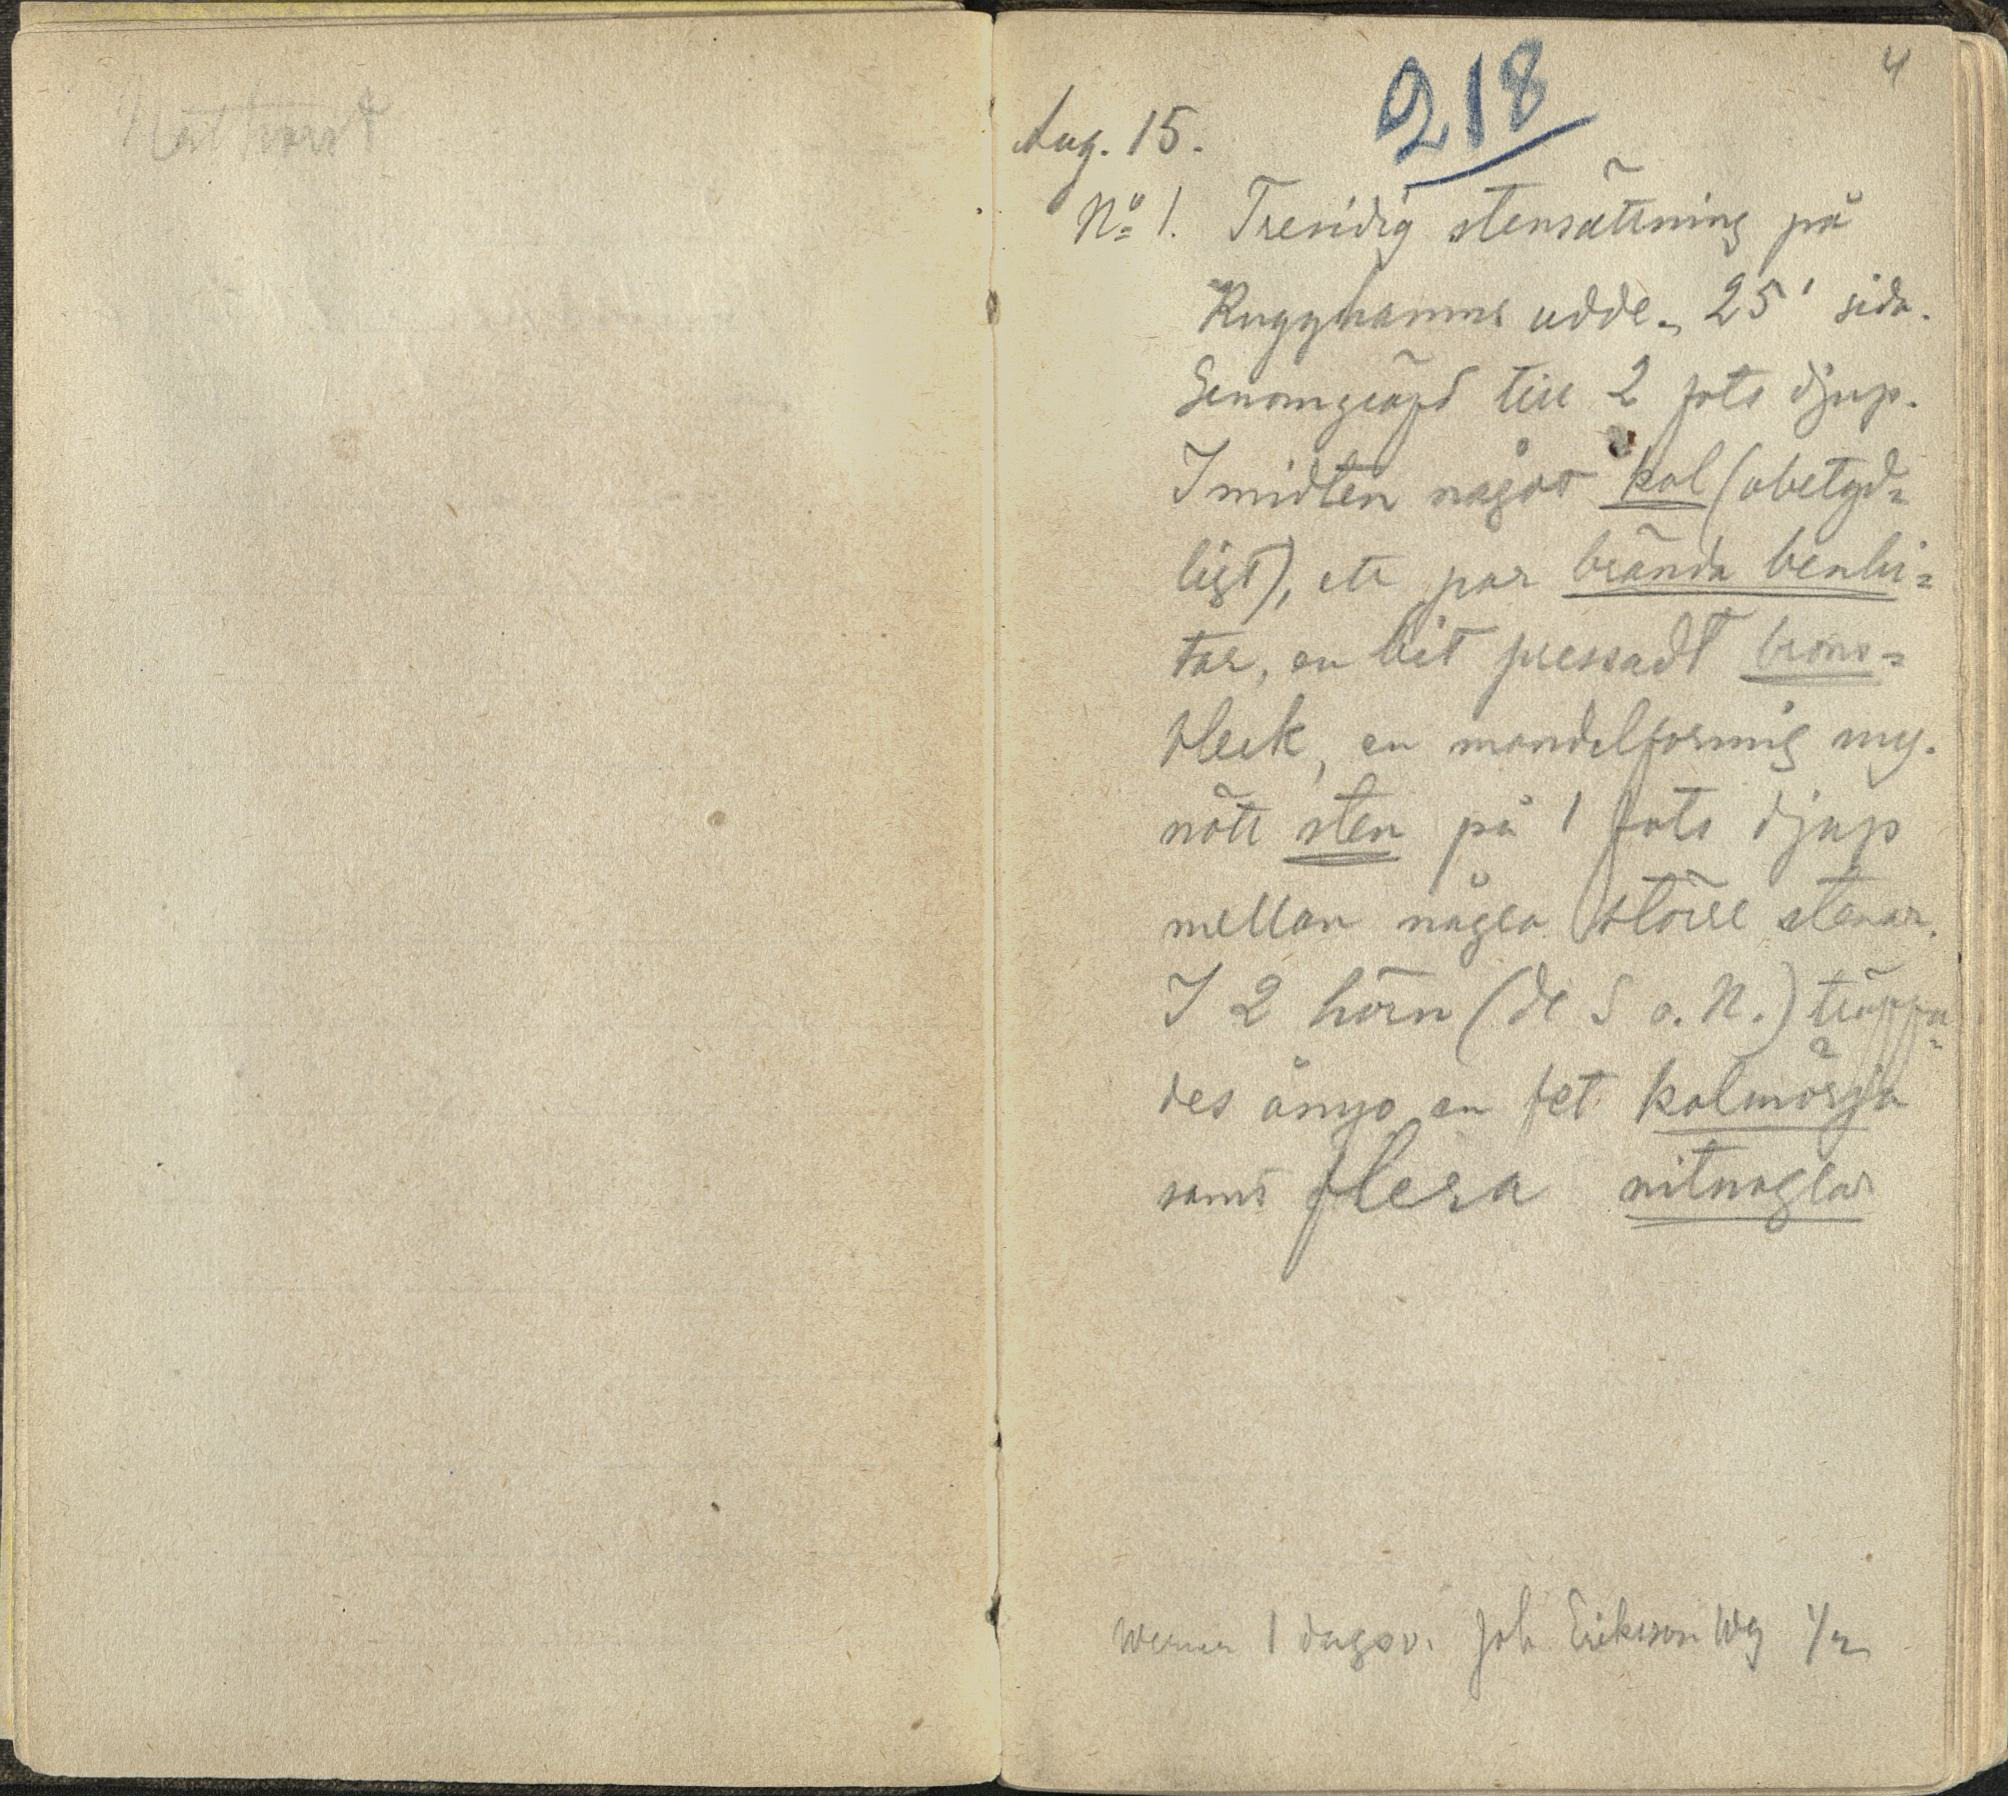 Nathorst
4
218
Aug. 15.
No 1. Tresidig stensättning på
udde. 25' sida.
Genomgräfd till 2 fots djup.
I midten något kol (obetyd=
ligt), ett par brända benbi=
tar, en bit pressadt brons=
bleck, en mandelformig
nött sten på 1 fots djup
mellan några större stenar.
I 2 hörn (de S o. N.) träffa=
des ånyo en fet kolmörja
samt flera nitnaglar
Werner 1 dagsv. Joh Eriksson Wg 1/2